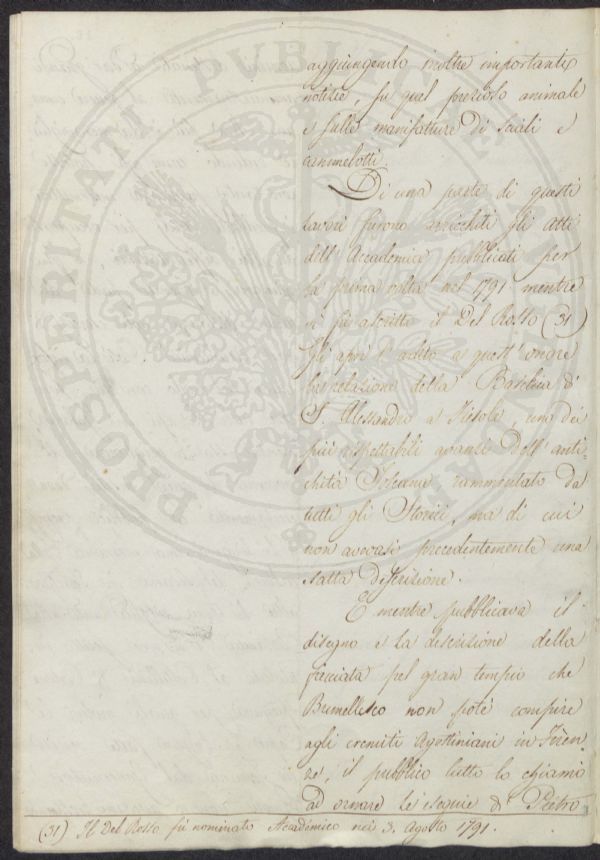 aggiungendo inoltre importanti
notizie, su quel prezioso animale
e sulle manifatture di sciali e
cammelotti.
Di una parte di questi
lavori furono arricchiti gli Atti
dell'Accademia pubblicati per
la prima volta nel 1791 mentre
vi fu ascritto il Del Rosso (31)
Gli aprì l'adito a quest'onore
la relazione della Basilica di
S. Alessandro a Fiesole, uno dei
più rispettabili avanzi dell'anti=
chità Toscana rammentato da
tutti gli Storici, ma di cui
non avevasi precedentemente una
esatta descrizione.
E mentre pubblicava il
disegno e la descrizione della
facciata pel gran tempio che
Brunellesco non potè compire
agli eremiti Agostiniani in Firen=
ze, il pubblico lutto lo chiamò
ad ornare le esequie di Pietro
(31) Il Del Rosso fù nominato Accadémico nei 3. Agosto 1791.
PROSPERITATI PUBLICAE